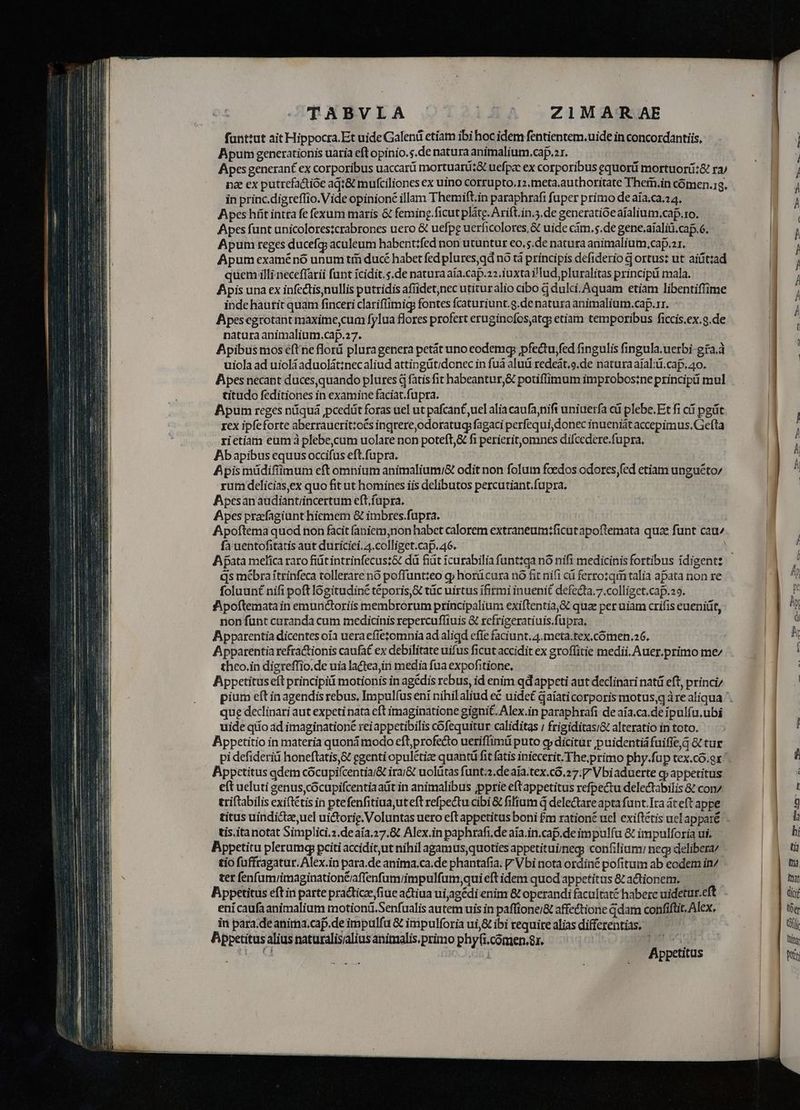 TABVLA ZIMARAE
sunt:ut ait Hippocra. Et uide Galenũ etiam ibi hoc idem sentientem. uide in concordantiis.
Apum generationis uaria est opinio. 5. de natura animalium. cap. 21.
Apes generant̃ ex corporibus uaccarũ mortuarũ: & uespæ ex corporibus equorũ mortuorũ: & ra/
næ ex putrefactiõe aq̃: & musciliones ex uino corrupto. 12. meta. authoritate Them̃. in cõmen. 19.
in princ. digressio. Vide opinionẽ illam Themist. in paraphrasi super primo de aĩa. ca. 24.
Apes hñt intra se sexum maris & femine. sicut plãte. Arist. in. 3. de generatiõe aĩalium. cap. 10.
Apes sunt unicolores: crabrones uero & uespe uersicolores, & uide cãm. 5. de gene. aĩaliũ. cap. 6.
Apum reges ducesq; aculeum habent: sed non utuntur eo. 5. de natura animalium, cap. 21.
Apum examẽ nõ unum tm̃ ducẽ habet sed plures, qd nõ tã principis desiderio q̃ ortus: ut aiũt: ad
quem illi necessarii sunt ĩcidit. 5. de natura aĩa. cap. 22. iuxta illud, pluralitas principũ mala.
Apis una ex insectis, nullis putridis assidet, nec utitur alio cibo q̃ dulci. Aquam etiam libentissime
inde haurit quam sinceri clarissimiq; fontes scaturiunt. 9. de natura animalium. cap. 11.
Apes egrotant maxime, cum sylua flores profert eruginosos, atq; etiam temporibus siccis. ex. 9. de
natura animalium. cap. 27.
Apibus mos est ne florũ plura genera petãt uno eodemq; ꝓfectu, sed singulis singula. uerbi·gr̃a. à
uiola ad uiolã aduolãt: nec aliud attingũt: donec in suã aluũ redeãt. 9. de natura aĩaliũ. cap. 40.
Apes necant duces, quando plures q̃ satis sit habeantur, & potissimum improbos: ne principũ mul
titudo seditiones in examine faciat. supra.
Apum reges nũquã ꝓcedũt foras uel ut pascant̃, uel alia causa, nisi uniuersa cũ plebe. Et si cũ ꝓgũt
rex ipse forte aberrauerit: oẽs inqrere, odoratuq; sagaci persequi, donec inueniãt accepimus. Gesta
ri etiam eum à plebe, cum uolare non potest, & si perierit, omnes discedere. supra.
Ab apibus equus occisus est. supra.
Apis mũdissimum est omnium animalium: & odit non solum fœdos odores, sed etiam unguẽto/
rum delicias, ex quo fit ut homines iis delibutos percutiant. supra.
Apes an audiant: incertum est. supra.
Apes præsagiunt hiemem & imbres. supra.
Apostema quod non facit saniem, non habet calorem extraneum: sicut apostemata quæ sunt cau/
sa uentositatis aut duriciei. 4. colliget. cap. 46.
Apata melica raro fiũt intrinsecus: & dũ fiũt ĩcurabilia sunt: qa nõ nisi medicinis fortibus ĩdigent:
qs mẽbra ĩtrinseca tollerare nõ possunt: eo ꝙ horũ cura nõ fit nisi cũ ferro: qm̃ talia apata non re
soluunt̃ nisi post lõgitudinẽ tẽporis, & tũc uirtus ĩfirmi inuenit̃ defecta. 7. colliget. cap. 29.
Apostemata in emunctoriis membrorum principalium existentia, & quæ per uiam crisis eueniũt,
non sunt curanda cum medicinis repercussiuis & refrigeratiuis. supra.
Apparentia dicentes oĩa uera esse: omnia ad aliqd esse faciunt. 4. meta. tex. cõmen. 26.
Apparentia refractionis causat̃ ex debilitate uisus sicut accidit ex grossitie medii. Auer. primo me/
theo. in digressio. de uia lactea, in media sua expositione.
Appetitus est principiũ motionis in agẽdis rebus, id enim qd appeti aut declinari natũ est, princi/
pium est in agendis rebus. Impulsus eni nihil aliud eẽ uidet̃ q̃ aĩati corporis motus, q à re aliqua
que declinari aut expeti nata est imaginatione gignit̃. Alex. in paraphrasi de aĩa. ca. de ĩpulsu. ubi
uide qũo ad imaginationẽ rei appetibilis cõsequitur caliditas / frigiditas: & alteratio in toto.
Appetitio in materia quonã modo est, profecto uerissimũ puto ꝙ dicitur ꝓuidentiã fuisse, q̃ & tur
pi desideriũ honestatis, & egenti opulẽtiæ quantũ sit satis iniecerit. The. primo phy. sup tex. cõ. 81
Appetitus qdem cõcupiscentia: & ira: & uolũtas sunt: 2. de aĩa. tex. cõ. 27. Vbi aduerte ꝙ appetitus
est ueluti genus, cõcupiscentia aũt in animalibus ꝓprie est appetitus respectu delectabilis & con/
tristabilis existẽtis in pte sensitiua, ut est respectu cibi & filium q̃ delectare apta sunt. Ira ãt est appe
titus uindictæ, uel uictorie. Voluntas uero est appetitus boni ẜm rationẽ uel existẽtis uel apparẽ
tis. ita notat Simplici. 2. de aĩa. 27. & Alex. in paphrasi. de aĩa. in. cap. de impulsu & impulsoria ui.
Appetitu plerumq; pciti accidit, ut nihil agamus, quoties appetitui: neq; consilium: neq; delibera/
tio suffragatur. Alex. in para. de anima. ca. de phantasia. Vbi nota ordinẽ positum ab eodem in/
ter sensum: imaginationẽ: assensum: impulsum, qui est idem quod appetitus & actionem.
Appetitus est in parte practicæ, siue actiua ui, agẽdi enim & operandi facultatẽ habere uidetur. est
eni causa animalium motionũ. Sensualis autem uis in passione: & affectione q̃dam consistit. Alex.
in para. de anima. cap. de impulsu & impulsoria ui, & ibi require alias differentias.
Appetitus alius naturalis: alius animalis. primo physi. cõmen. 81.
Appetitus